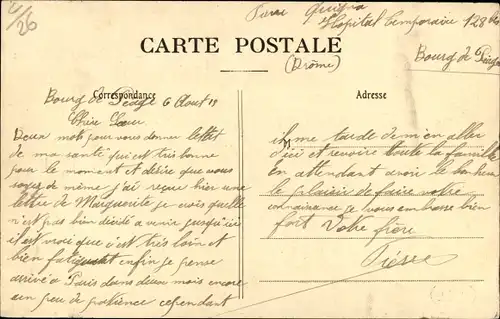 4/26
Pierre
Hopital Temporaire 128 bis
CARTE POSTALE
(Drôme)
Bourg de Péage
Correspondance
Adresse
Bourg de Péage 6 Aout 19
Chère Sœur
Deux mots pour vous donner
de ma santé qui est très bonne
pour le moment et désire que vous
soyez de même j'ai reçue hier une
lettre de Marguerite je crois quelle
n'est pas bien décidé a venir jusqu'ici
il est vrai que c'est très loin et
bien fatiguant enfin je pense
arrivé a Paris dans deux mois encore
un peu de patience cependant
il me tarde de m'en aller
d'ici et revoire toute la famille
En attendant avoir le bonheur
le plaisir de faire votre
connaissance je vous embrasse bien
fort Votre frère
Pierre